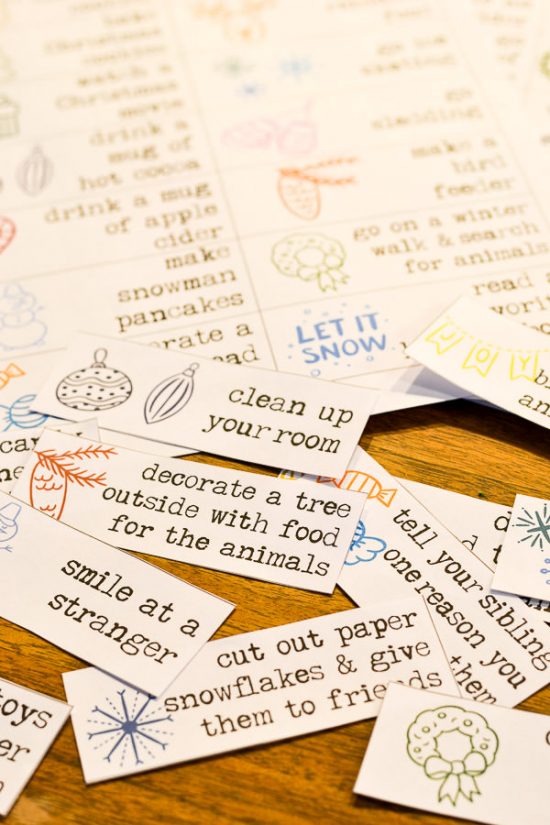 Christmas
cookies
watch a
Christmas
movie
drink a
mug of
hot cocoa
drink a mug
of apple
cider
make
snowman
pancakes
go ice
skating
go
sledding
make a
bird
feeder
go on a winter
walk & search
for animals
read
LET IT
SNOW
JOY
clean up
your room
decorate a tree
outside with food
for the animals
smile at a
stranger
tell your sibling
one reason you
them
cut out paper
snowflakes & give
them to friends
toys